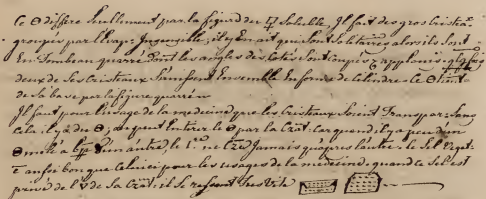 Ce 🜔 differe seullement par la figure du 🜿 soluble, Il fait des gros cristaux
groupés par l'evap: Insensible; il y En ait qui sont solitaires alors ils sont
En Tombeau quarré dont les angles des Cotés sont coupés & applanis
deux de ses cristaux s'unissent Ensemble En forme de Cilindre. Ce
de sa base par la figure quarrée
Il faut pour l'usage de la medecine que les cristaux soient Transpar: sans
Cela il y a du on peut l'oter par la Crist: car quand il y a peu d'un
mêlé à un autre, le 1er ne Crist: Jamais qu'apres l'autre. le sel Veget:
est aussi bon que celui ci pour les usages de la medecine, quand ce sel est
privé de l' de sa Crist: il se ressout tres vite